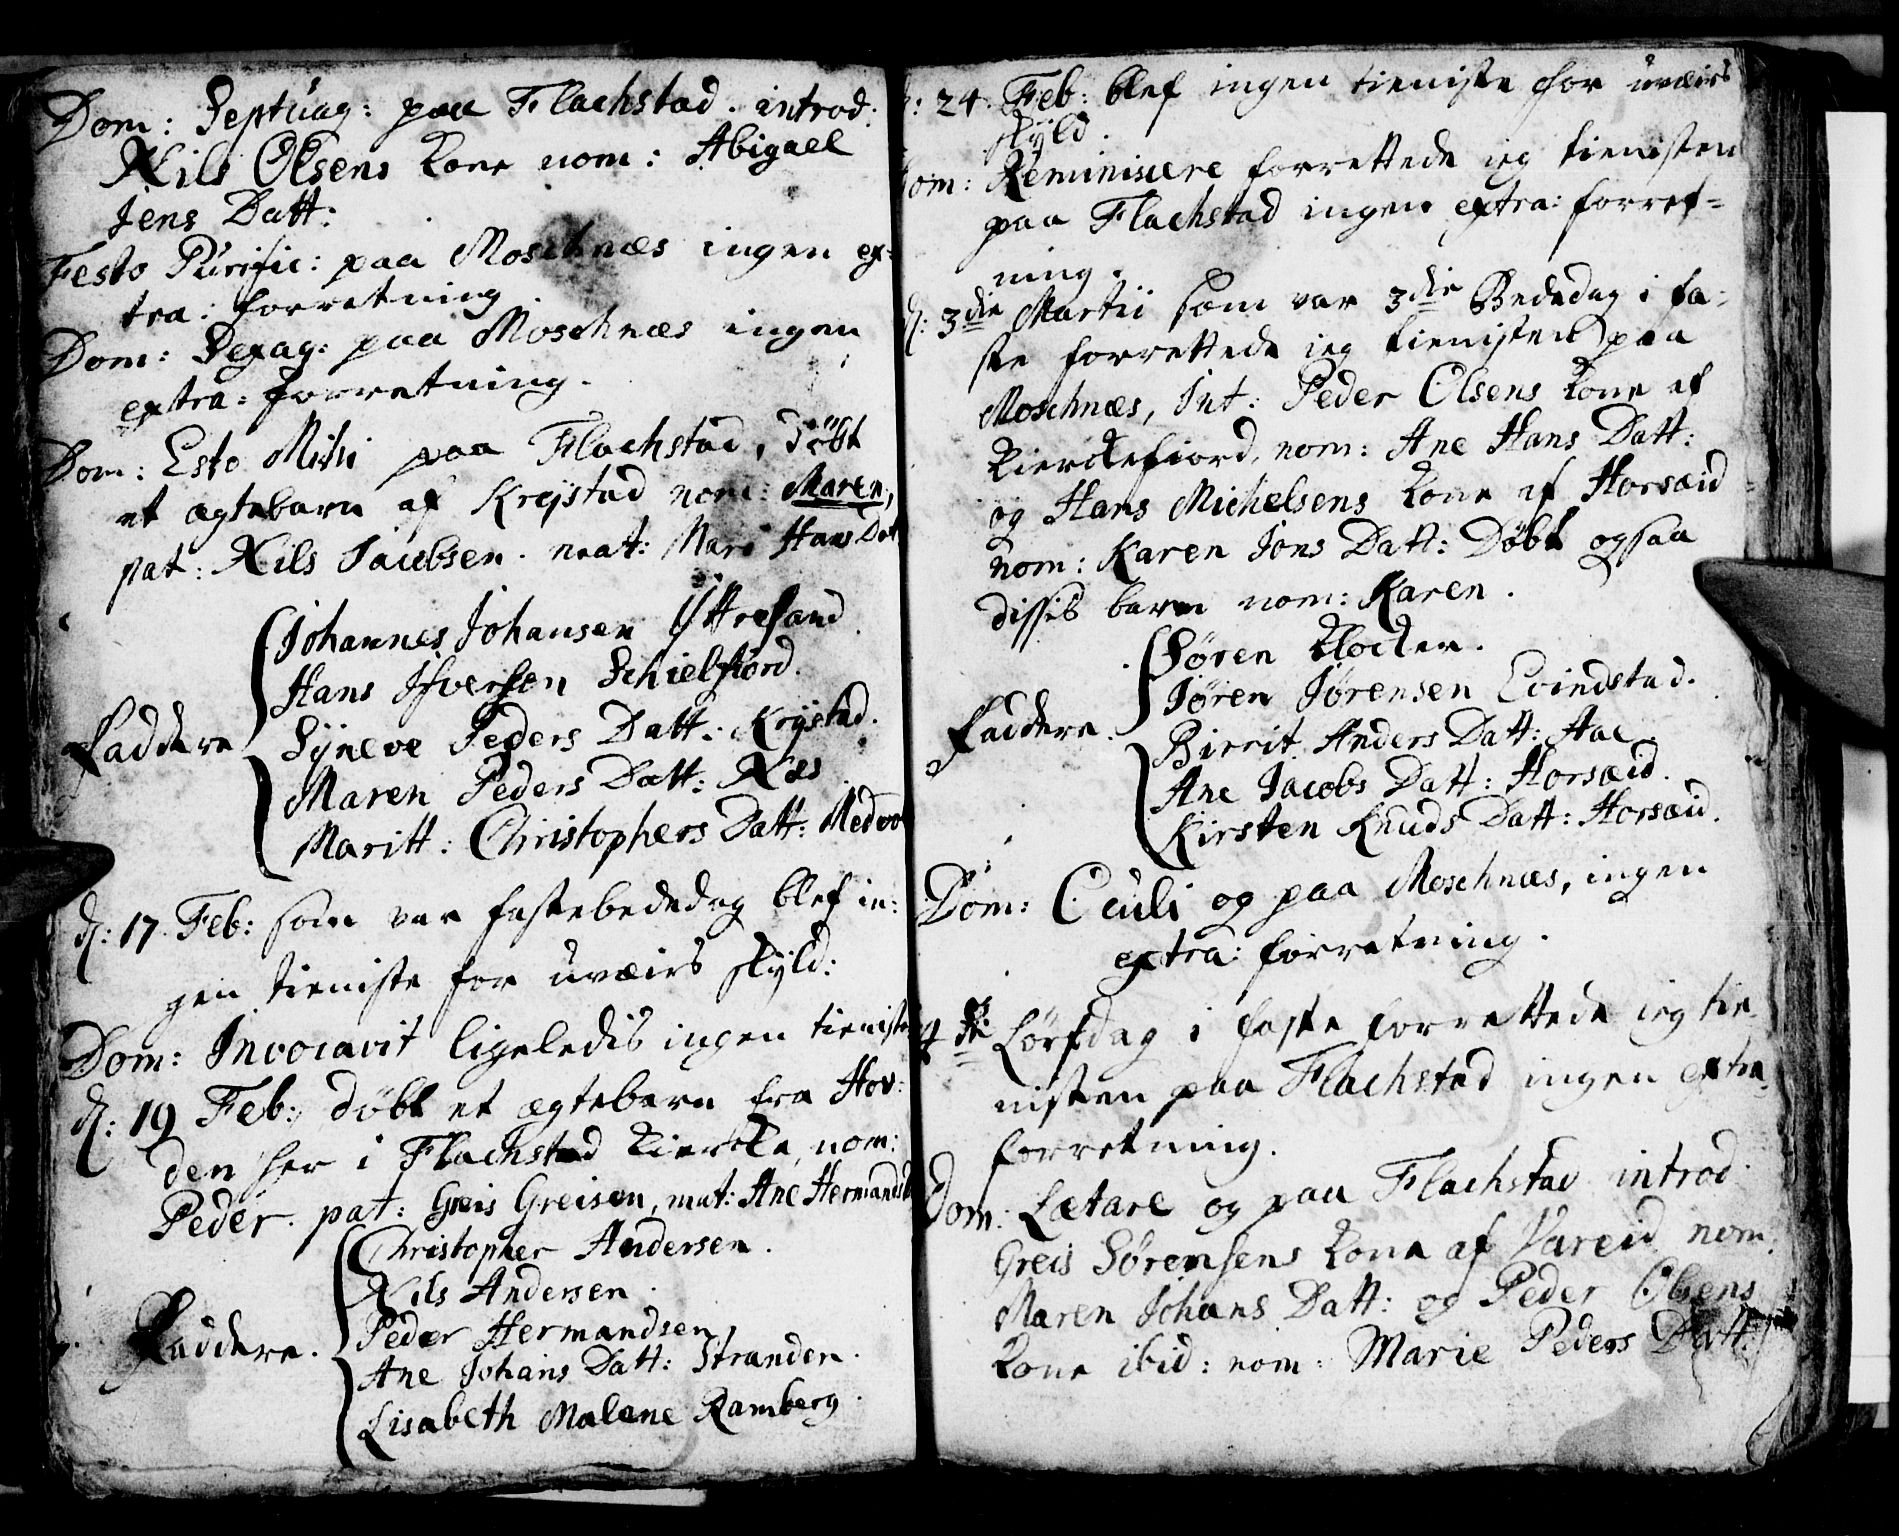 Dom: Septuag: paa Flachstad. introd:
Nils Olsens Kone nom: Abigael
Jens Datt:
Festo Purific: paa Moschnæs ingen ex-
tra: forretning.
Dom: Sexag: paa Moschnæs ingen
extra: forretning.
Dom: Esto Mihi paa Flachstad, døbt
et ægtebarn af Krystad nom: Maren,
pat: Nils Jacobsen. mat: Mari Hans Dat
Johannes Johansen Yttresand
Hans Ifversen Schielfiord.
Faddere Syneve Peders Datt: Krystad.
Maren Peders Datt: Næs
Maritt: Christophers Datt: Medvol
d: 17. Feb: som var fastebededag blef in-
gen tieniste for uveirs skyld:
Dom: Invocavit ligeledis ingen tieniste
d: 19 Feb: døbt et ægtebarn fra Hov:
den her i Flachstad Kiercke, nom:
Peder. pat: Greis Greisen, mat: Ane Hermands
Christopher Andersen.
Nils Andersen.
Faddere. Peder Hermandsen,
Ane Johans Datt: Stranden.
Lisabeth Malene Ramberg.
d: 24. Feb: blef ingen tieniste for uveirs
skyld.
Dom: Reminiscere forrettede jeg tienisten
paa Flachstad ingen extra: forret-
ning.
d: 3die Martii som var 3die Bededag i fa-
ste forrettede jeg tienisten paa
Moschnæs, Int: Peder Olsens Kone af
Kierckefiord, nom: Ane Hans Datt:
og Hans Michelsens Kone af Horsæid
nom: Karen Jons Datt: Døbt ogsaa
dissis barn nom: Karen.
Søren Klocker.
Jøren Jørensen Evindstad.
Faddere. Birrit Anders Datt: Aae.
Ane Jacobs Datt: Horsæid.
Kirsten Knuds Datt: Horsæid.
Dom: Oculi og paa Moschnæs, ingen
extra: forretning.
4de Løfsdag i faste forrettede jeg tie-
nisten paa Flachstad ingen extra-
forretning.
Dom: Lætare og paa Flachstad introd.
Greis Sørensens Kone af Vareid nom:
Maren Johans Datt: og Peder Olsens
Kone ibid: nom: Marie Peders Datt: